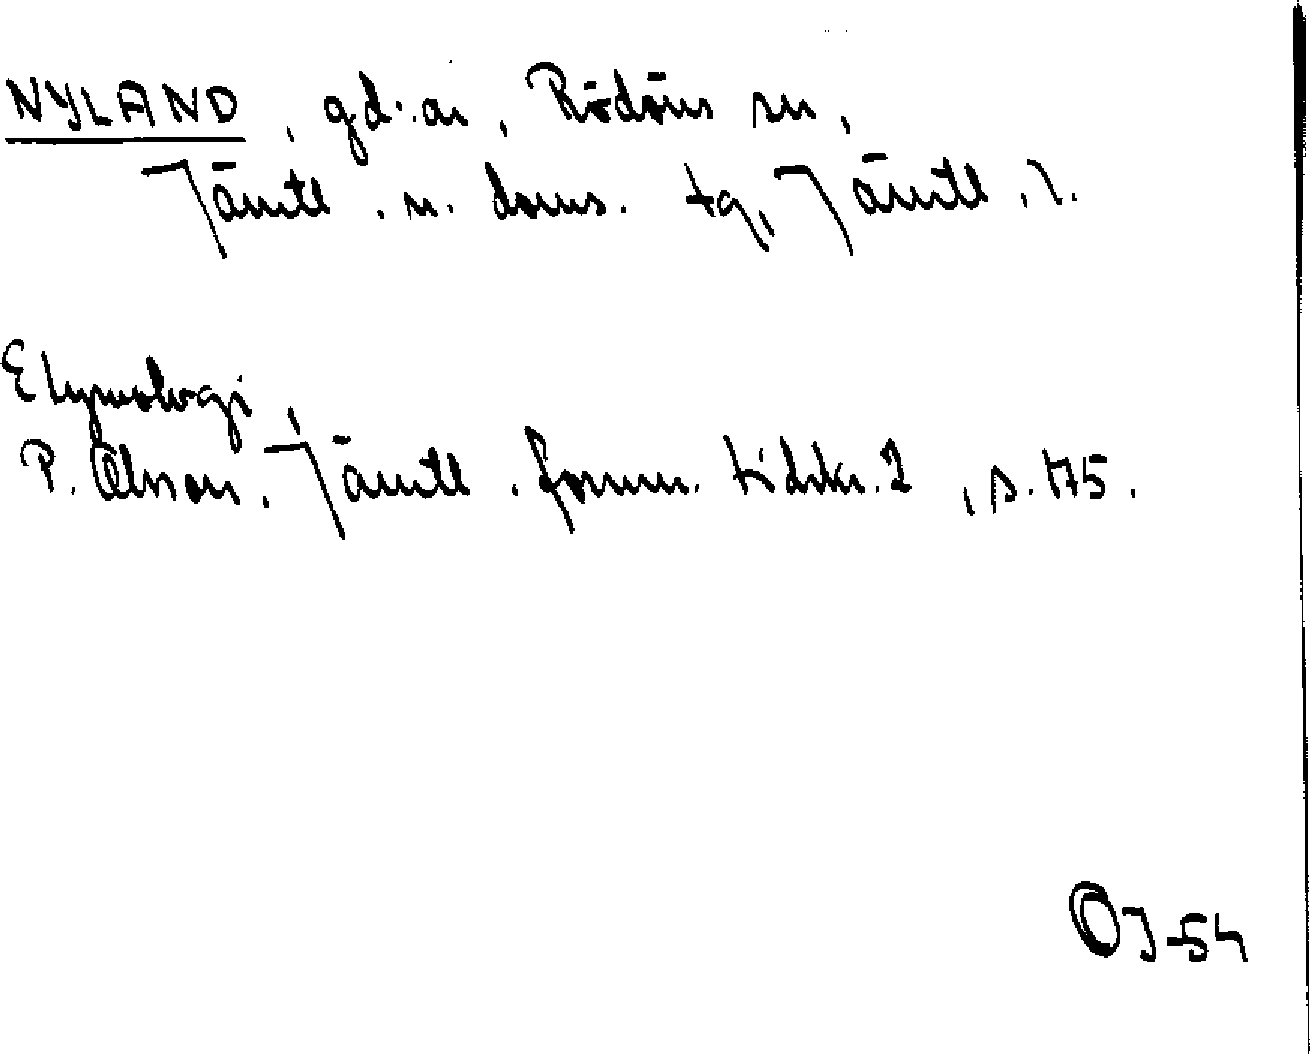 NYLAND, gd.ar, Rödöns sn,
Jämtl. n. doms. tg, Jämtl. l.
Etymologi
P. Olsson, Jämtl. fornm. tidskr. 2, s. 175.
OJ-54